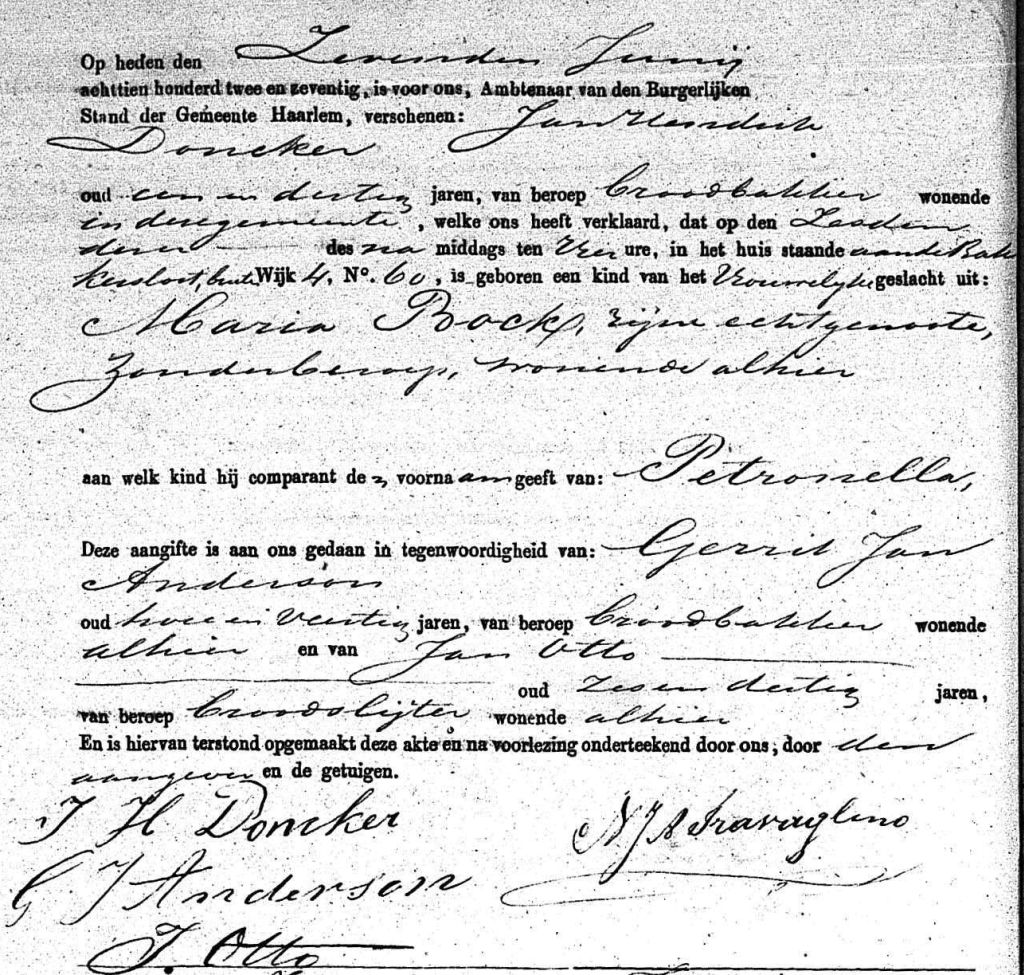 Op heden den Zevenden Junij
achttien honderd twee en zeventig, is voor ons, Ambtenaar van den Burgerlijken
Stand der Gemeente Haarlem, verschenen: Jan Hendrik
Doncker
oud een en dertig jaren, van beroep broodbakker wonende
in dezegemeente, welke ons heeft verklaard, dat op den Zesden
dezer des na middags ten Vier ure, in het huis staande aande Bak
kersloot, Wijk 4, No. 60, is geboren een kind van het Vrouwelijke geslacht uit:
Maria Bock, zijne echtgenoote,
Zonder beroep, wonende alhier
aan welk kind hij comparant de voornaam geeft van: Petronella,
Deze aangifte is aan ons gedaan in tegenwoordigheid van: Gerrit Jan
Anderson
oud twee en Veertig jaren, van beroep broodbakker wonende
alhier en van Jan Otto
oud zes en dertig jaren,
van beroep broodslijter wonende alhier
En is hiervan terstond opgemaakt deze akte en na voorlezing onderteekend door ons, door den
aangever en de getuigen.
J H Doncker
N J A Travaglino
G J Anderson
J. Otto